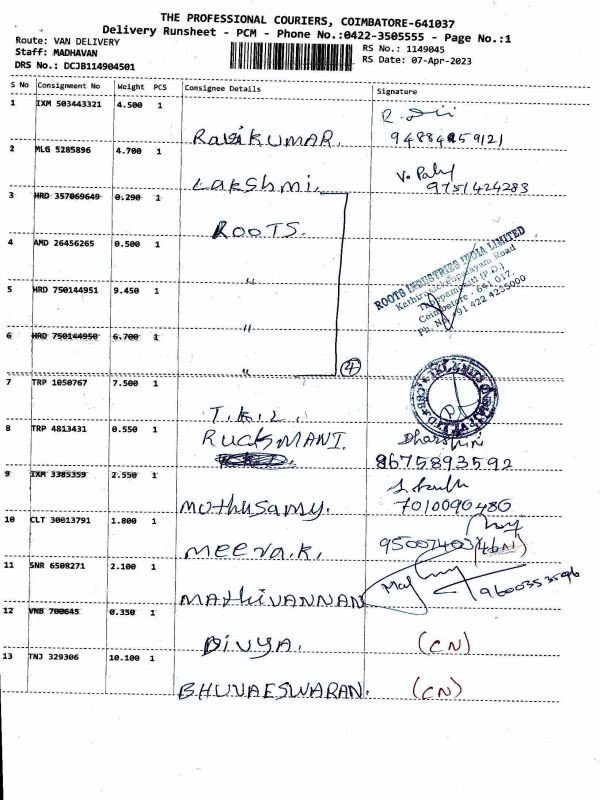 THE PROFESSIONAL COURIERS, COIMBATORE-641037
Delivery Runsheet - PCM - Phone No.:0422-3505555 - Page No.:1
Route: VAN DELIVERY
Staff: MADHAVAN
DRS No.: DCJB114904501
RS No.: 1149045
RS Date: 07-Apr-2023
S No Consignment No Weight PCS Consignee Details Signature
1 IXM 503443321 4.500 1
RaviKUMAR.
2 MLG 5285896 4.700 1
Lakshmi.
9751424283
3 HRD 357069649 0.290 1
ROOTS.
4 AMD 26456265 0.500 1
"
5 HRD 750144951 9.450 1
"
ROOTS INDUSTRIES INDIA LIMITED
Coimbatore - 641 017.
Ph. No. +91 422 4235000
6 HRD 750144950 6.700 1
"
4
7 TRP 1050767 7.500 1
T.K.L.
8 TRP 4813431 0.550 1
RUCKMANI.
Dharshini
8675893592
9 IXM 3385359 2.550 1
Mothusamy.
7010090480
10 CLT 30013791 1.800 1
Meena.K.
11 SNR 6508271 2.100 1
MathiVANNAN
9600353596
12 VNB 700645 0.350 1
Divya.
(CN)
13 TNJ 329306 10.100 1
BHUVAESWARAN.
(CN)